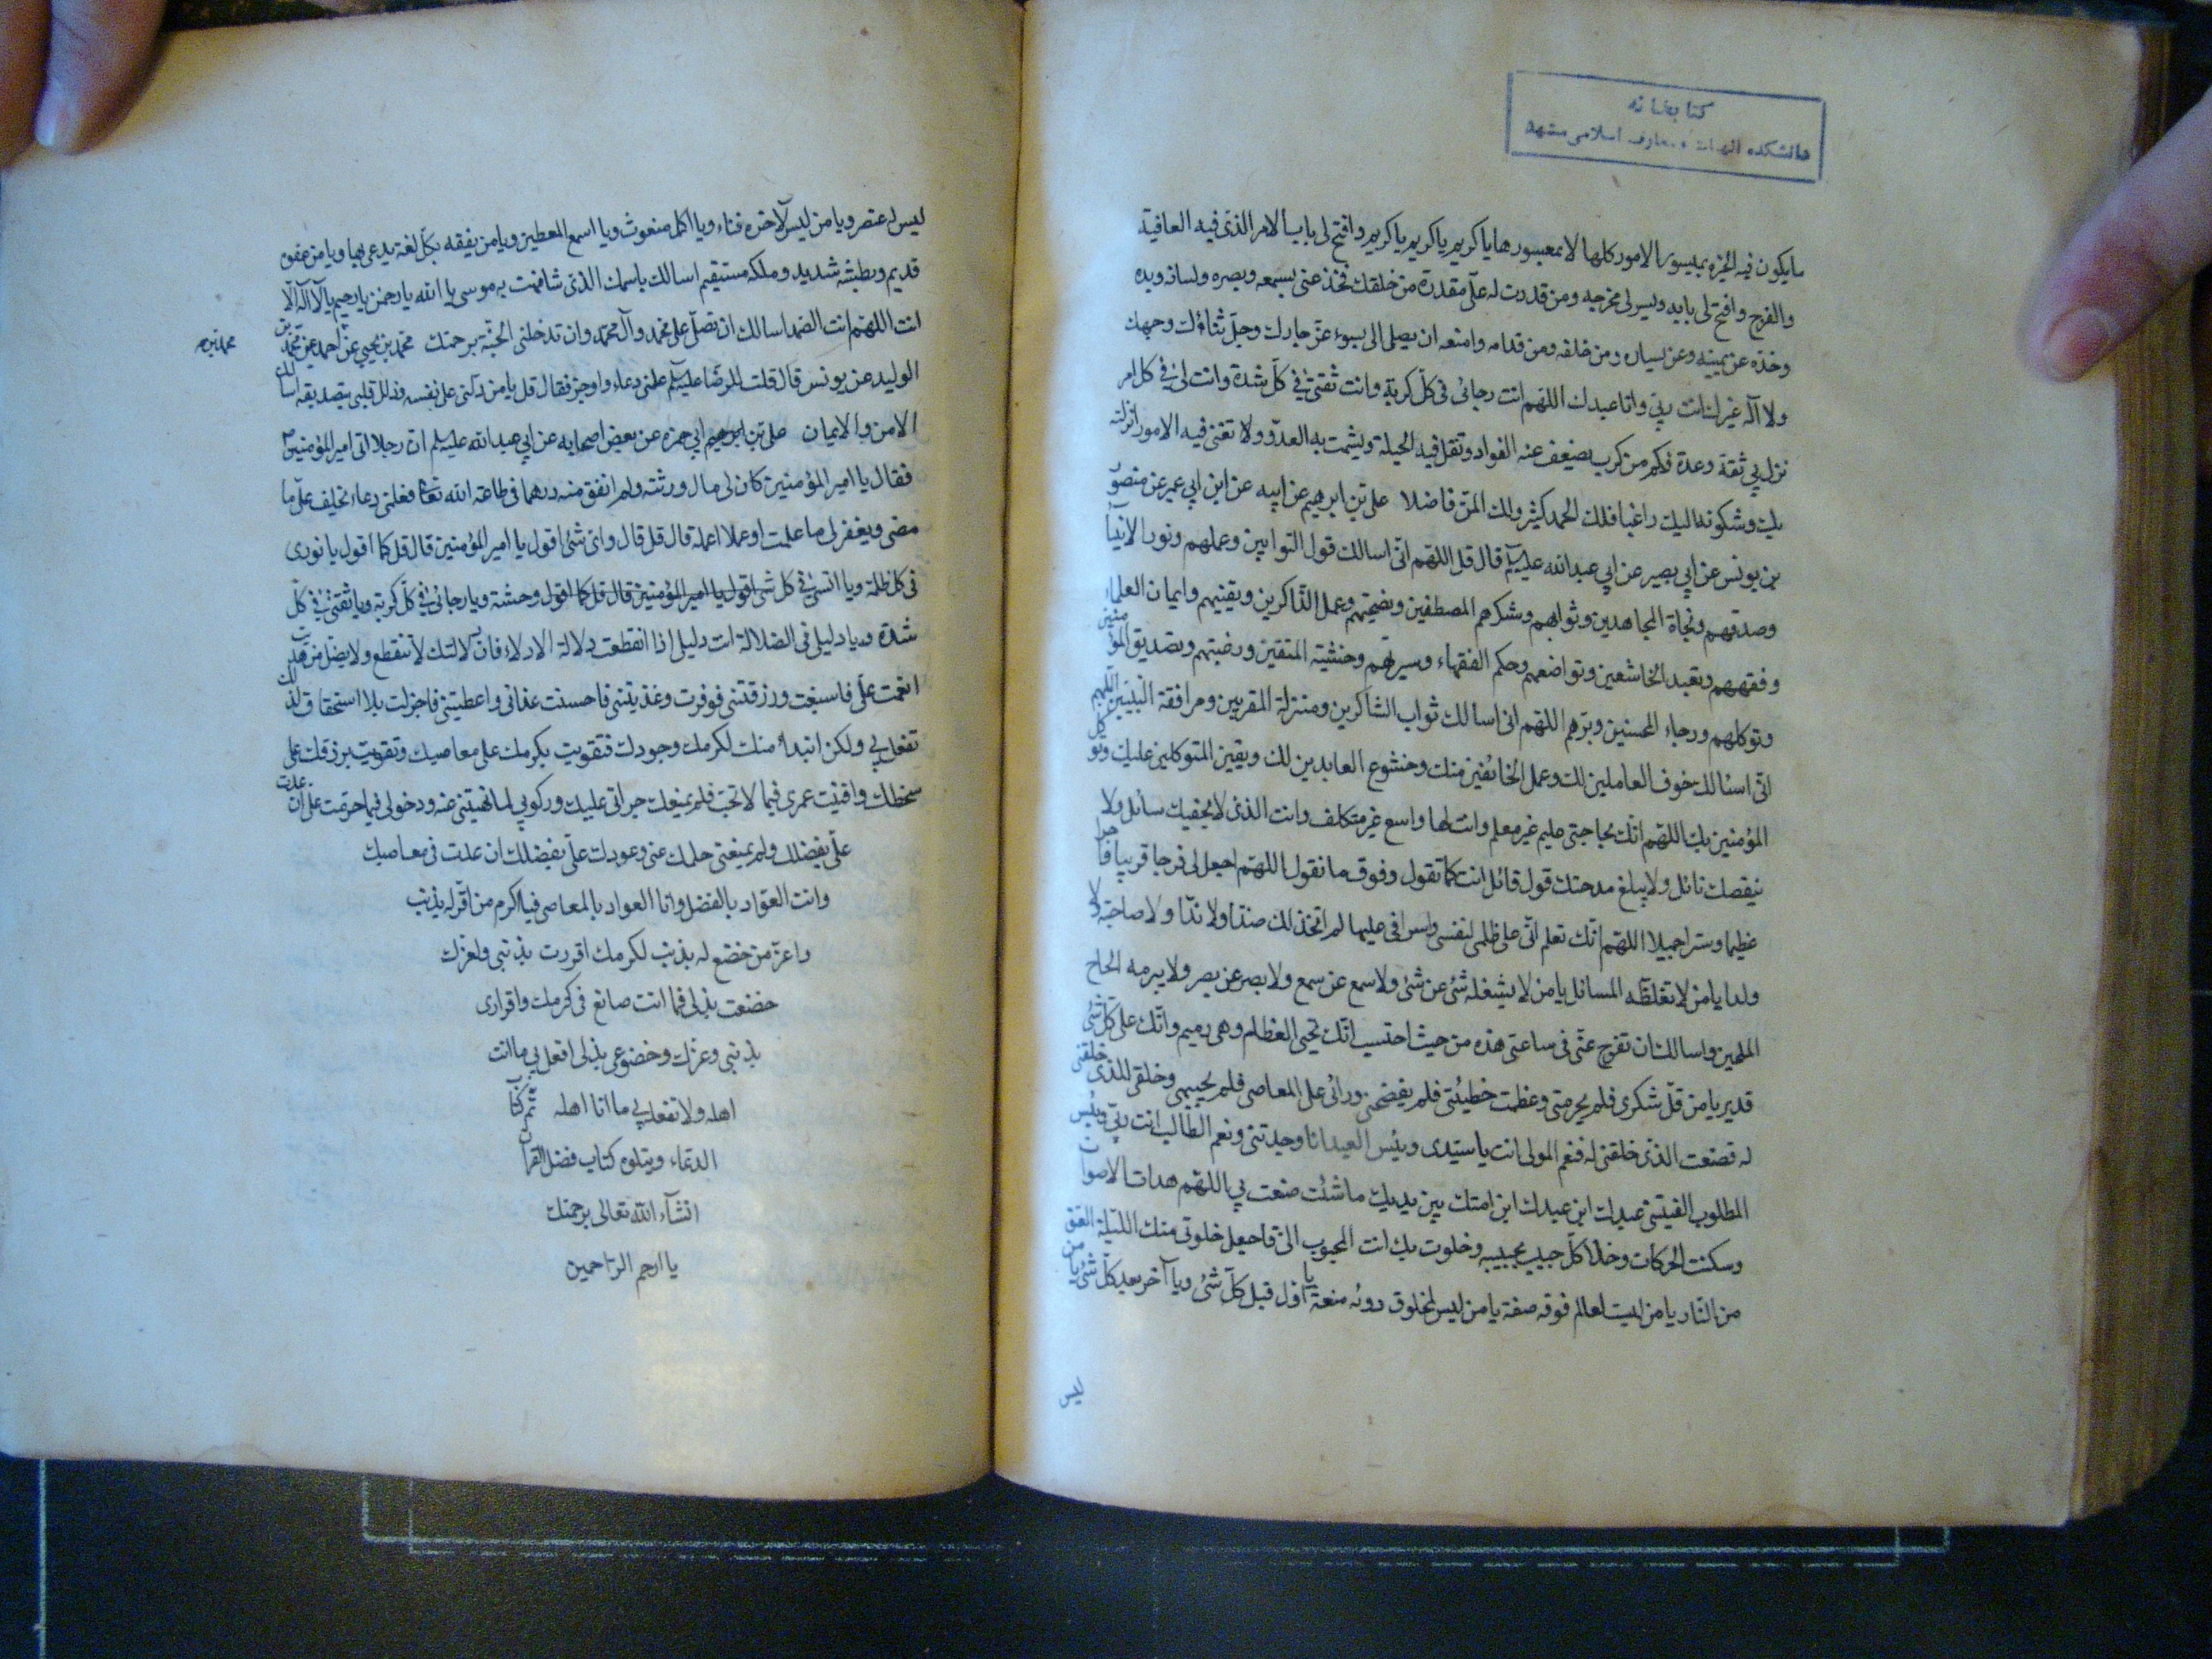 كتابخانه
دانشكده الهيات و معارف اسلامى مشهد
ما يكون فيه الخيرة بميسور الامور كلها لا بمعسورها يا كريم يا كريم يا كريم وافتح لى باب الامر الذى فيه العافية
والفرج وافتح لى بابه ويسر لى مخرجه ومن قدرت له على مقدرة من خلقك فخذ عنى بسمعه وبصره ولسانه ويده
وخذه عن يمينه وعن يساره ومن خلفه ومن قدامه وامنعه ان يصل الى بسوء عز جارك وجل ثناؤك وجهك
ولا اله غيرك انت ربى وانا عبدك اللهم انت رجائى فى كل كربة وانت ثقتى فى كل شدة وانت لى فى كل امر
نزل بى ثقة وعدة فكم من كرب يضعف عنه الفواد وتقل فيه الحيلة ويشمت به العدو ولا تغنى فيه الامور انزلته
بك وشكوته اليك راغبا فلك الحمد كثير ولك المن فاضلا على بن ابرهيم عن ابيه عن ابن ابى عمير عن منصور
بن يونس عن ابى بصير عن ابى عبد الله عليه السلم قال قل اللهم انى اسالك قول التوابين وعملهم ونور الانبيا
وصدقهم ونجاة المجاهدين وثوابهم وشكرهم المصطفين ونصيحتهم وعمل الذاكرين ويقينهم وايمان العلماء
وفقههم وتعبد الخاشعين وتواضعهم وحكم الفقهاء وسيرتهم وخشية المتقين ورغبتهم وتصديق المؤمنين
وتوكلهم ورجاء المحسنين وبرهم اللهم انى اسالك ثواب الشاكرين ومنزلة المقربين ومرافقة النبيين اللهم
انى اسئالك خوف العاملين لك وعمل الخائفين منك وخشوع العابدين لك ويقين المتوكلين عليك وتوكل
المؤمنين بك اللهم انك بحاجتى عليم غير معلم وانت لها واسع غير متكلف وانت الذى لا يحفيك سائل ولا
ينقصك نائل ولا يبلغ مدحتك قول قائل انت كما تقول وفوق ما نقول اللهم اجعل لى فرجا قريبا واجرا
عظيما وسترا جميلا اللهم انك تعلم انى على ظلمى لنفسى واسرافى عليها لم اتخذ لك ضدا ولا ندا ولا صاحبة ولا
ولدا يا من لا تغلطه المسائل يا من لا يشغله شئ عن شئ ولا سمع عن سمع ولا بصر عن بصر ولا يبرمه الحاح
الملحين واسالك ان تفرج عنى فى ساعتى هذه من حيث احتسب انك تحيى العظام وهى رميم وانك على كل شئ
قدير يا من قل شكرى فلم يحرمنى وعظمت خطيئتى فلم يفضحنى ورانى على المعاصى فلم يجبهنى وخلقنى للذى خلقنى
له فصنعت الذى خلقنى له فنعم المولى انت يا سيدى وبئس العبد انا وجدتنى ونعم الطالب انت ربى وبئس
المطلوب الفيتنى عبدك ابن عبدك ابن امتك بين يديك ما شئت صنعت بى اللهم هدات الاصوات
وسكنت الحركات وخلا كل حبيب بحبيبه وخلوت بك انت المحبوب الى فاجعل خلوتى منك الليلة العتق
من النار يا من ليست لعالم فوقه صفة يا من ليس لمخلوق دونه منعة يا اول قبل كل شئ ويا آخر بعد كل شئ يا من
ليس
ليس له عنصر ويا من ليس لآخره فناء ويا اكمل منعوث ويا اسمع المعطين ويا من يفقه بكل لغة يدعى بها ويا من عفوه
قديم وبطشه شديد وملكه مستقيم اسالك باسمك الذى شافهت به موسى يا الله يا رحمن يا رحيم يا لا اله الا
انت اللهم انت الصمد اسالك ان تصلى على محمد وآل محمد وان تدخلنى الجنة برحمتك محمد بن يحيى عن احمد عن محمد بن
الوليد عن يونس قال قلت للرضا عليه السلم علمنى دعاء واوجز فقال قل يا من دلنى على نفسه وذلل قلبى بتصديقه اسالك
الامن والايمان على بن ابرهيم ابى حمزه عن بعض اصحابه عن ابى عبد الله عليه السلم ان رجلا اتى امير المؤمنين
فقال يا امير المؤمنين كان لى مال ورثته ولم انفق منه درهما فى طاعة الله تعالى فعلمنى دعاء يخلف على ما
مضى ويغفر لى ما علمت او عملا اعمله قال قل قال واى شئ اقول يا امير المؤمنين قال قل كما اقول يا نورى
فى كل ظلمة ويا انسى فى كل شئ اقول يا امير المؤمنين قال قل كما اقول وحشة ويا رجائى فى كل كربة ويا ثقتى فى كل
شدة ويا دليلى فى الضلالة انت دليل اذا انقطعت دلالة الادلاء فان دلالتك لا تنقطع ولا يضل من هديت
انعمت على فاسبغت ورزقتنى فوفرت وغذيتنى فاحسنت غذائى واعطيتنى فاجزلت بلا استحقاق لذلك
تفعل بى ولكن ابتداء منك لكرمك وجودك فتقويت بكرمك على معاصيك وتقويت برزقك على
سخطك وافنيت عمرى فيما لا تحب فلم يمنعك جراتى عليك وركوبى لما نهيتنى عنه ودخولى فيما حرمت على ان عدت
على بفضلك ولم يمنعنى حلمك عنى وعودك على بفضلك ان عدت فى معاصيك
وانت العواد بالفضل وانا العواد بالمعاصى فيا اكرم من اقر له بذنب
واعز من خضع له بذنب لكرمك اقررت بذنبى ولعزك
خضعت بذلى فما انت صانع فى كرمك واقرارى
بذنبى وعزك وخضوعى بذلى افعل بى ما انت
اهله ولا تفعل بى ما انا اهله تم كتاب
الدعاء ويتلوه كتاب فضل القرآن
انشآء الله تعالى برحمتك
يا ارحم الراحمين